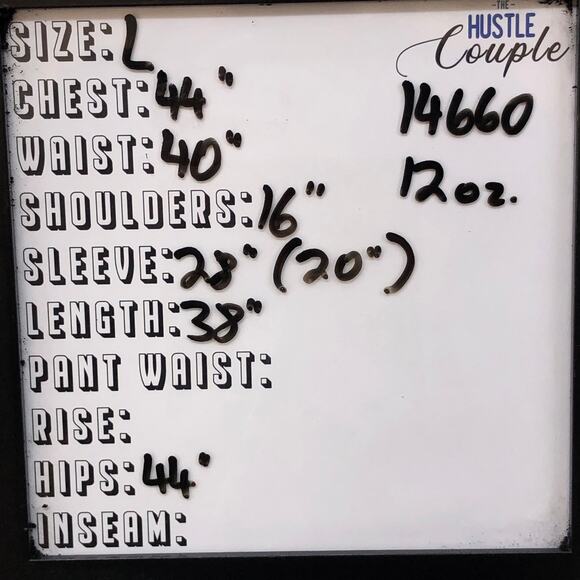 SIZE: L
CHEST: 44"
WAIST: 40"
SHOULDERS: 16"
SLEEVE: 28" (20")
LENGTH: 38"
PANT WAIST:
RISE:
HIPS: 44"
INSEAM:
-THE-
HUSTLE
Couple
14660
12 oz.